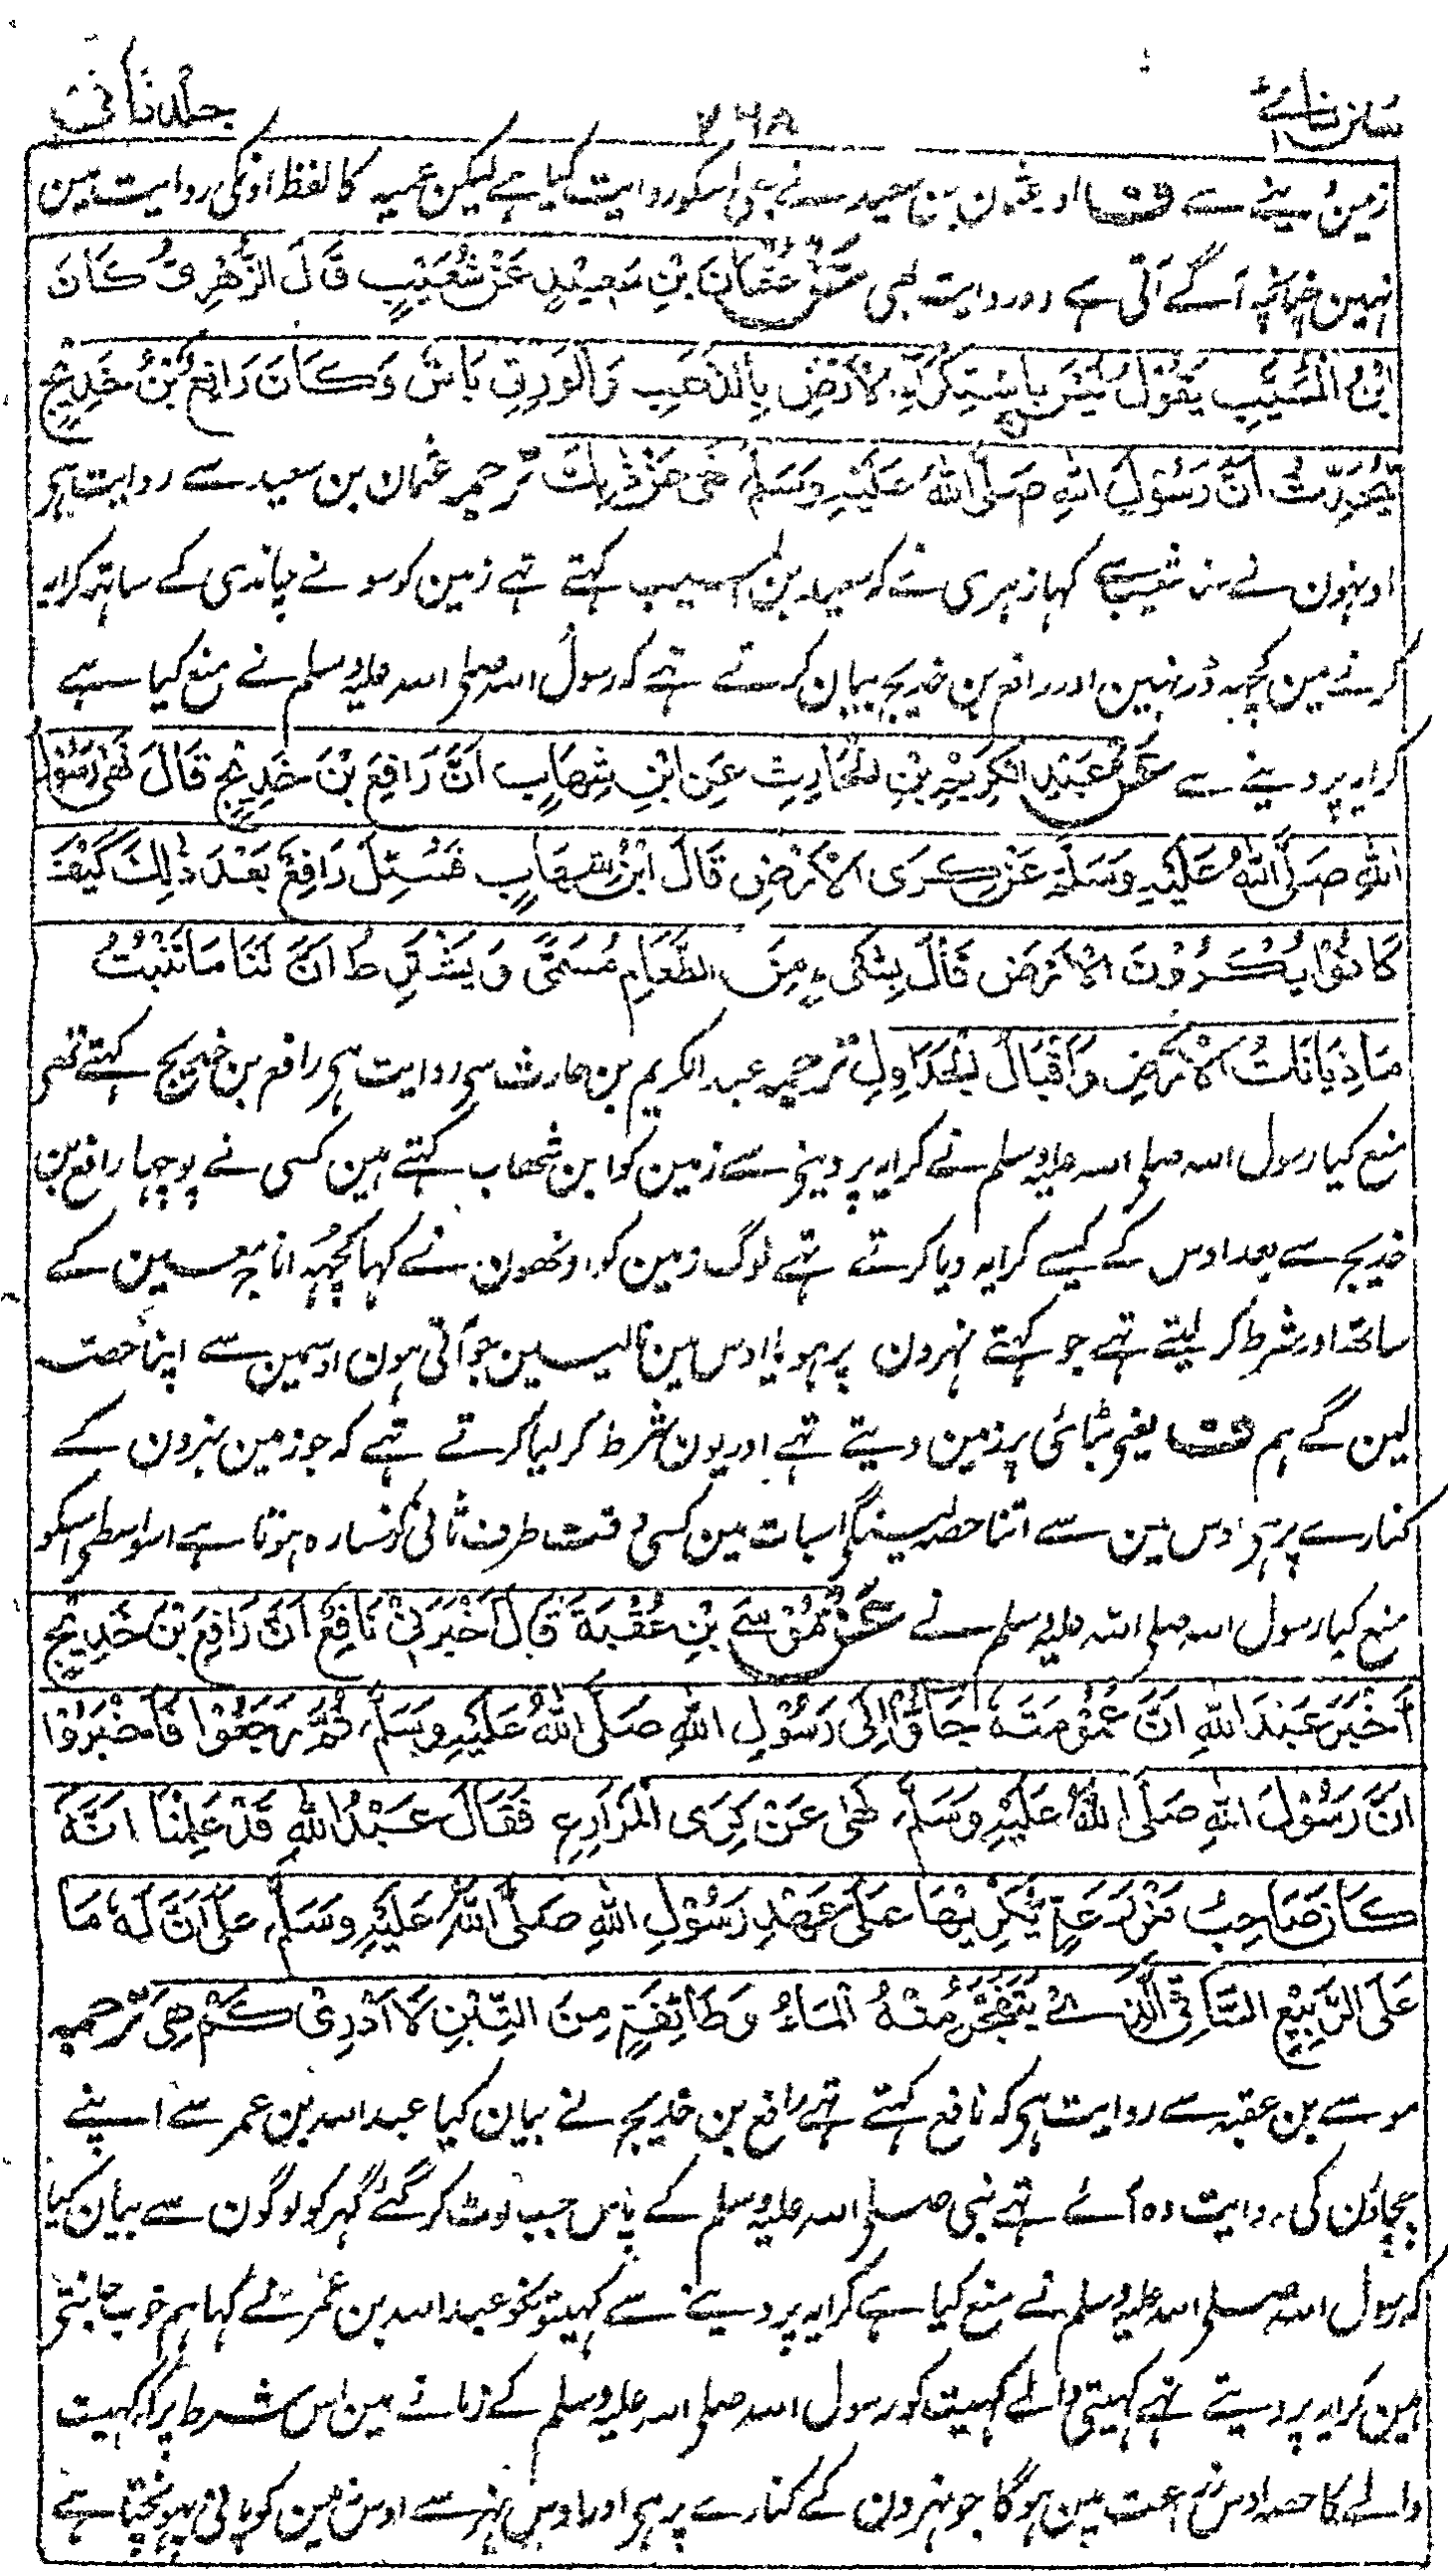 سنن نسائے ۷۶۸ جلد ثانی
زمین دینے سے ف اور عثمان بن سعید نے بہی اسکو روایت کیا ہے لیکن عمیہ کا لفظ اونکی روایت مین
نہین چنانچہ آگے آتی ہے دور وایت یہی عَنْ عُثْمَانَ بْنِ سَعِيْدٍ عَنْ شُعَيْبٍ قَالَ الزُّهْرِيُّ كَانَ
ابْنُ الْمُسَيِّبِ يَقُوْلُ لَيْسَ بِاسْتِكْرَاءِ الْاَرْضِ بِالذَّهَبِ وَالْوَرِقِ بَاسٌ وَكَانَ رَافِعُ بْنُ خَدِيْجٍ
يُحَدِّثُ اَنَّ رَسُوْلَ اللهِ صَلَّى اللهُ عَلَيْهِ وَسَلَّمَ نَهٰى عَنْ ذٰلِكَ ترجمہ عثمان بن سعید سے روایت ہیر
اونہون نے سنا شعیب سے کہا زہری نے کہ سعید بن المسیب کہتے تہے زمین کو سونے چاندی کے ساتہہ کرایہ
کرنے مین کچہہ ڈر نہین اور رافع بن خدیج بیان کرتے تہے کہ رسول اللہ صلی اللہ علیہ وسلم نے منع کیا ہے
کرایہ پر دینے سے عَنْ عَبْدِ الْكَرِيْمِ بْنِ الْحَارِثِ عَنِ ابْنِ شِهَابٍ اَنَّ رَافِعَ بْنَ خَدِيْجٍ قَالَ نَهٰى رَسُوْلُ
اللهِ صَلَّى اللهُ عَلَيْهِ وَسَلَّمَ عَنْ كِرَى الْاَرْضِ قَالَ ابْنُ شِهَابٍ فَسُئِلَ رَافِعٌ بَعْدَ ذٰلِكَ كَيْفَ
كَانُوْا يُكْرُوْنَ الْاَرْضَ قَالَ بِشَيْءٍ مِنَ الطَّعَامِ مُسَمًّى وَيَشْتَرِطُ اَنَّ لَنَا مَا تَنْبُتُ
مَاذِيَانَاتُ الْاَرْضِ وَاَقْبَالُ الْجَدَاوِلِ ترجمہ عبد الکریم بن حارث سی روایت ہی رافع بن خدیج کہتے تھی
منع کیا رسول اللہ صلی اللہ علیہ وسلم نے کرایہ پر دینی سے زمین کو ابن شھاب کہتے ہین کسی نے پوچہا رافع بن
خدیج سے بعد اوس کے کیسے کرایہ دیا کرتے تہے لوگ زمین کو اونھون نے کہا کچہہ اناج معین کے
ساتھ اور شرط کر لیتے تہے جو کہتے نہرون پر ہو یا اوس مین نالیسین جو آتی ہون اوسمین سے اپنا حصہ
لین گے ہم ف یعنی بٹائی پر زمین دیتے تہے اور یون شرط کر لیا کرتے تہے کہ جو زمین نہرون کے
کنارے پر ہی اوس مین سے اتنا حصہ لینگی اسبات مین کسی وقت طرف ثانی کو خسارہ ہوتا ہے اسواسطی اسکو
منع کیا رسول اللہ صلی اللہ علیہ وسلم نے عَنْ مُوْسٰى بْنِ عُقْبَةَ قَالَ اَخْبَرَنِيْ نَافِعٌ اَنَّ رَافِعَ بْنَ خَدِيْجٍ
اَخْبَرَ عَبْدَ اللهِ اَنَّ عُمُوْمَتَهٗ جَاؤُا اِلٰى رَسُوْلِ اللهِ صَلَّى اللهُ عَلَيْهِ وَسَلَّمَ ثُمَّ رَجَعُوْا فَاَخْبَرُوْا
اَنَّ رَسُوْلَ اللهِ صَلَّى اللهُ عَلَيْهِ وَسَلَّمَ نَهٰى عَنْ كِرَى الْمَزَارِعِ فَقَالَ عَبْدُ اللهِ قَدْ عَلِمْنَا اَنَّهٗ
كَانَ صَاحِبُ مَزْرَعَةٍ يُكْرِيْهَا عَلٰى عَهْدِ رَسُوْلِ اللهِ صَلَّى اللهُ عَلَيْهِ وَسَلَّمَ عَلٰى اَنَّ لَهٗ مَا
عَلَى الرَّبِيْعِ السَّاقِي الَّذِيْ يَتَفَجَّرُ مِنْهُ الْمَاءُ وَطَائِفَةٍ مِنَ التِّبْنِ لَا اَدْرِيْ كَمْ هِيَ ترجمہ
موسے بن عقبہ سے روایت ہی کہ نافع کہتے تہے رافع بن خدیج نے بیان کیا عبد اللہ بن عمر سے اپنے
چچاؤن کی روایت وہ آئے تہے نبی صلی اللہ علیہ وسلم کے پاس جب لوٹ کر گئے گہر کو لوگون سے بیان کیا
کہ رسول اللہ صلی اللہ علیہ وسلم نے منع کیا ہے کرایہ پر دینے سے کہیتونکو عبد اللہ بن عمر نے کہا ہم خوب جانتی
ہین کرایہ پر دیتے تہے کہیتی والے کہیت کو رسول اللہ صلی اللہ علیہ وسلم کے زمانے مین اس شرط پر کہ کہیت
والے کا حصہ اوس زراعت مین ہوگا جو نہرون کے کنارے پر ہی اور اوس نہر سے اوس زمین کو پانی پہونچتا ہے